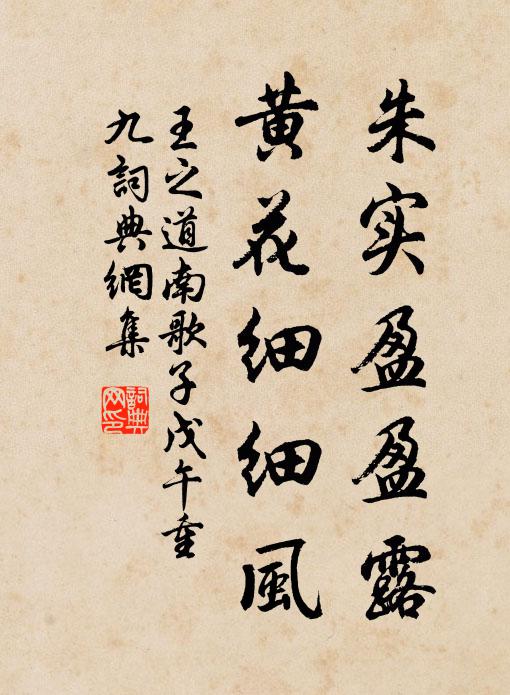 朱实盈盈露
黄花细细風
王之道南歌子戊午重
九詞典網集
詞典
网印